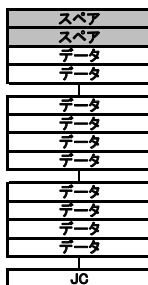 スペア
スペア
データ
データ
データ
データ
データ
データ
データ
データ
データ
データ
JC